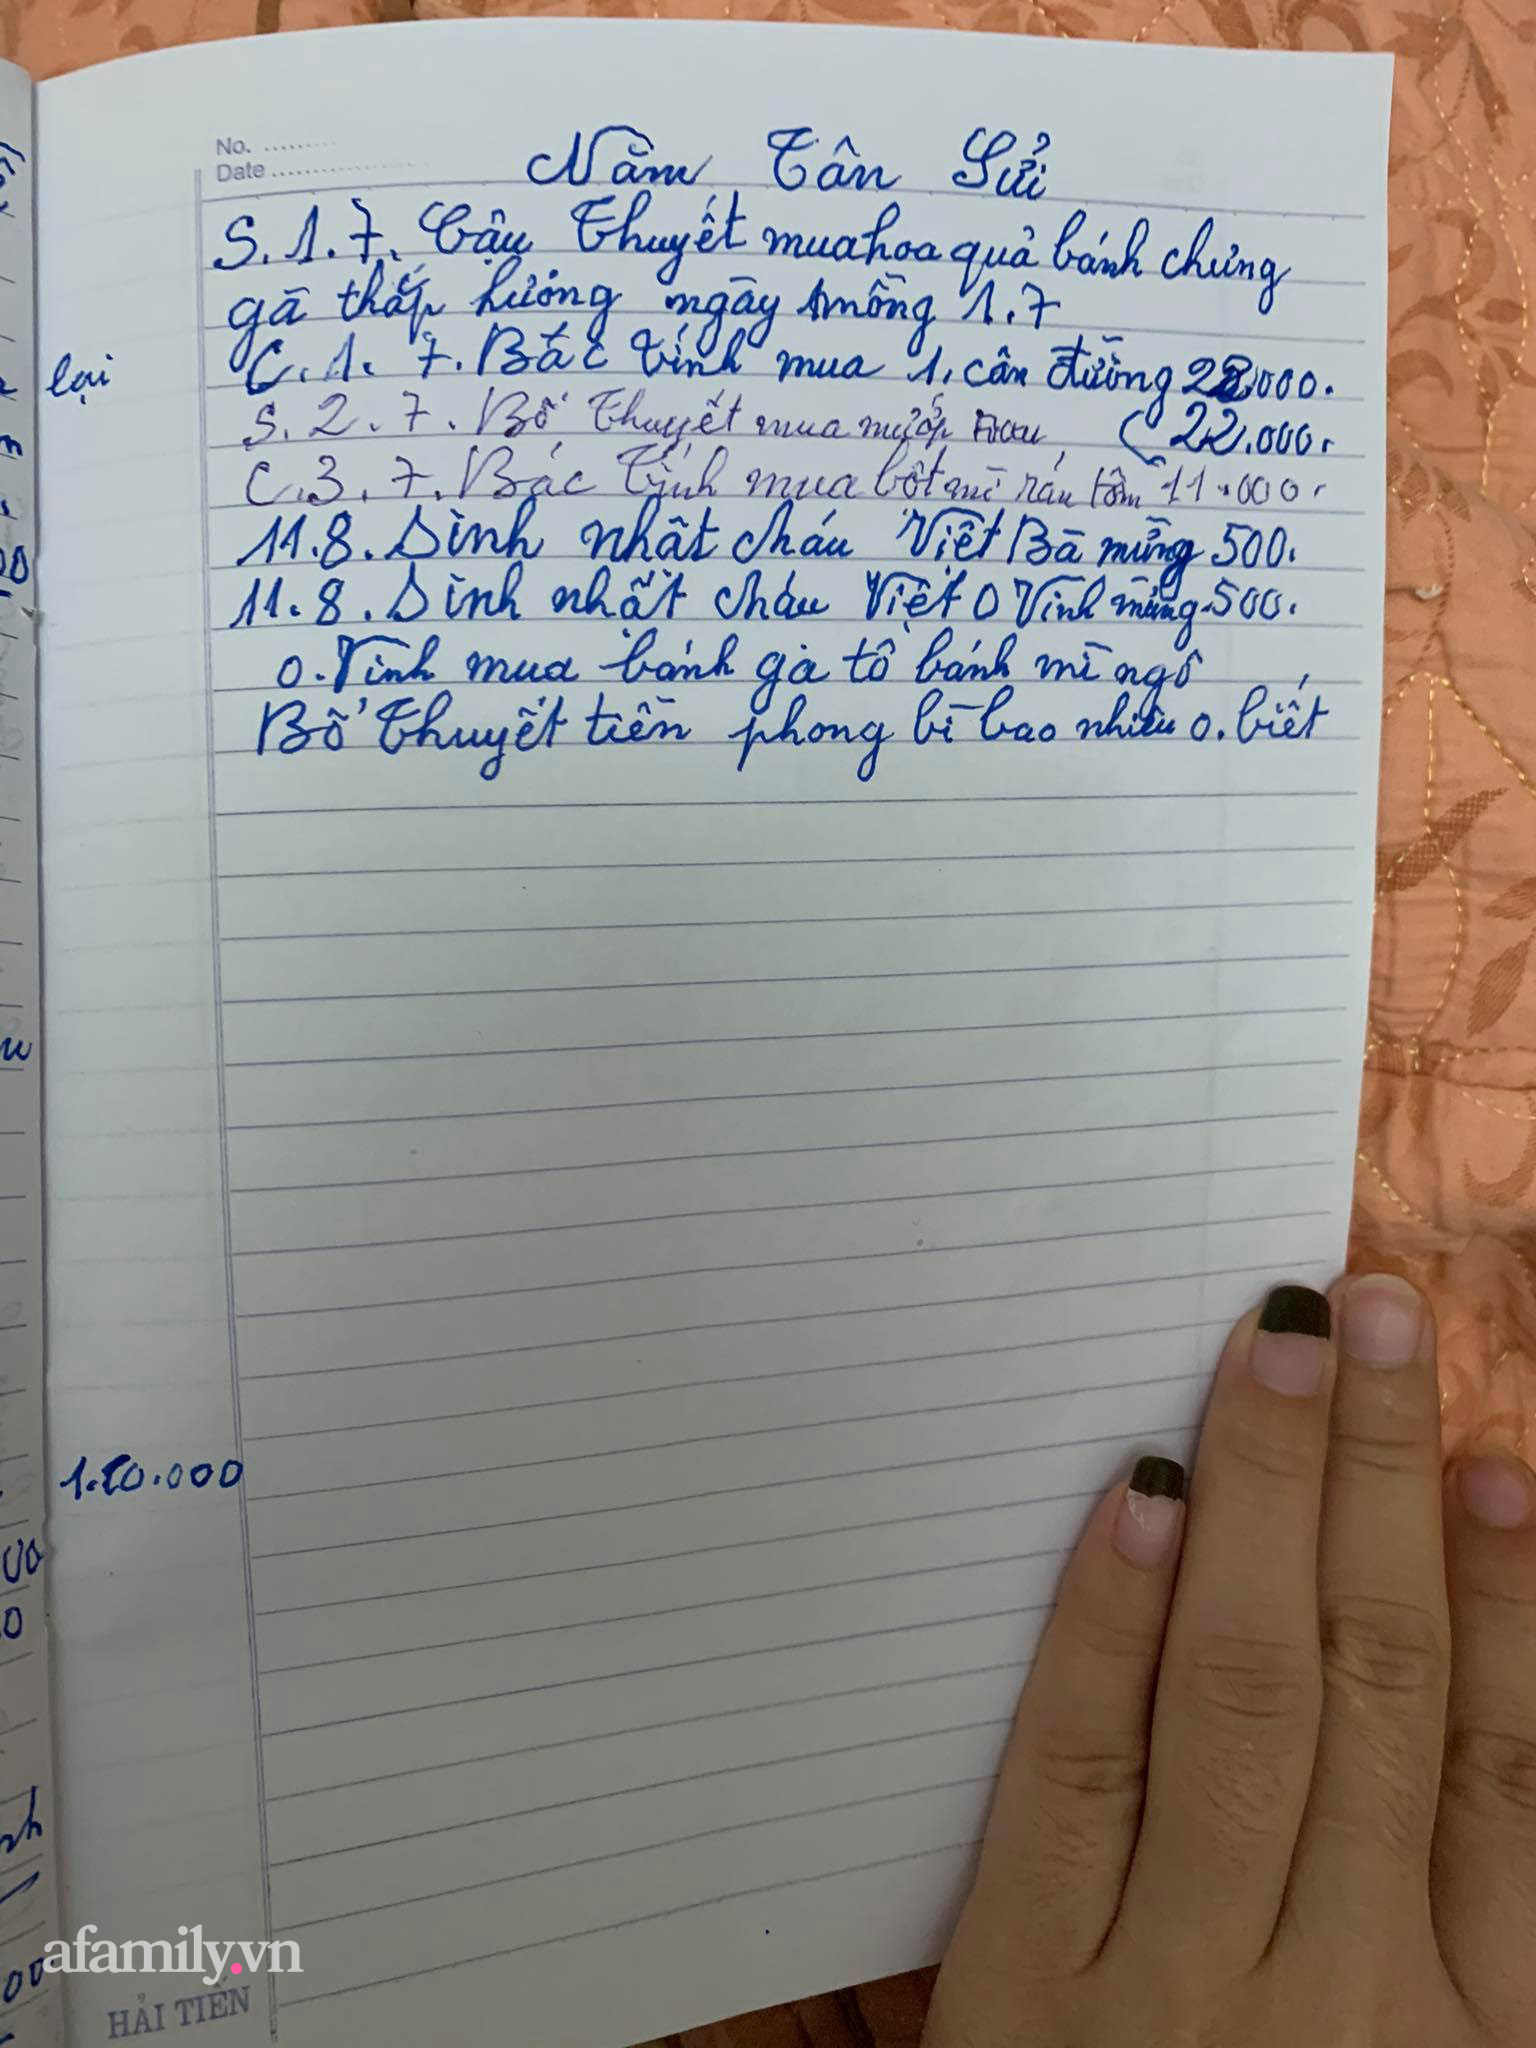 No. ........
Date ................
Năm Tân Sửi
S.1.7. Cậu Thuyết mua hoa quả bánh chưng
gà thắp hương ngày mồng 1.7
C.1.7. Bác Tính mua 1. cân đường 22.000.
S.2.7. Bố Thuyết mua mướp rau (22.000.
C.3.7. Bác Tính mua bột mì rán tôm 11.000.
11.8. Sinh nhật cháu Việt Bà mừng 500.
11.8. Sinh nhật cháu Việt O Vinh mừng 500.
O. Vinh mua bánh ga tô bánh mì ngô
Bố Thuyết tiền phong bì bao nhiêu o. biết
lại
1.20.000
afamily.vn
HẢI TIẾN